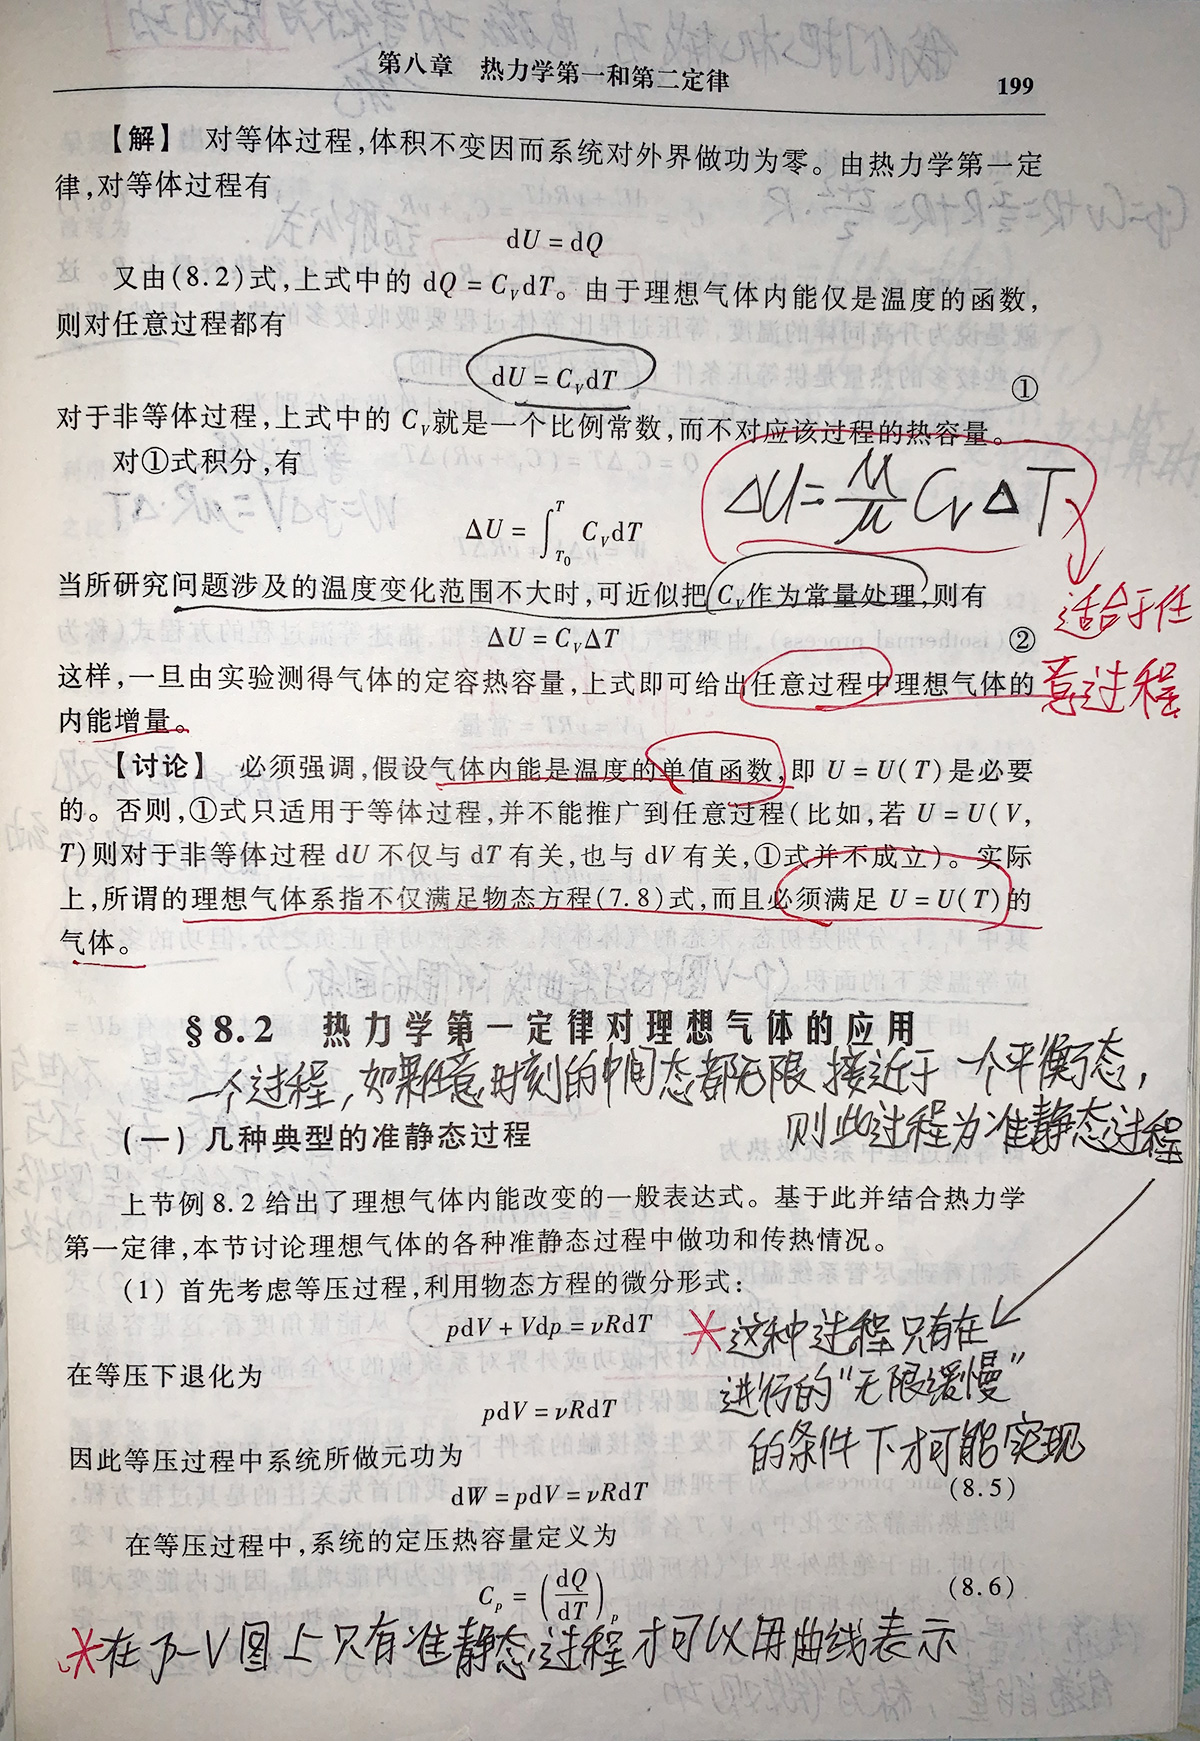 第八章 热力学第一和第二定律
199
【解】 对等体过程,体积不变因而系统对外界做功为零。由热力学第一定
律,对等体过程有
dU = dQ
又由(8.2)式,上式中的 dQ = C_V dT。由于理想气体内能仅是温度的函数,
则对任意过程都有
dU = C_V dT ①
对于非等体过程,上式中的 C_V 就是一个比例常数,而不对应该过程的热容量。
对①式积分,有
ΔU = M/μ C_V ΔT
ΔU = ∫_{T_0}^{T} C_V dT
当所研究问题涉及的温度变化范围不大时,可近似把 C_V 作为常量处理,则有
适合于任
意过程
ΔU = C_V ΔT ②
这样,一旦由实验测得气体的定容热容量,上式即可给出任意过程中理想气体的
内能增量。
【讨论】 必须强调,假设气体内能是温度的单值函数,即 U = U(T)是必要
的。否则,①式只适用于等体过程,并不能推广到任意过程(比如,若 U = U(V,
T)则对于非等体过程 dU 不仅与 dT 有关,也与 dV 有关,①式并不成立)。实际
上,所谓的理想气体系指不仅满足物态方程(7.8)式,而且必须满足 U = U(T)的
气体。
§8.2 热力学第一定律对理想气体的应用
一个过程,如果任意时刻的中间态都无限接近于一个平衡态,
则此过程为准静态过程
(一) 几种典型的准静态过程
上节例 8.2 给出了理想气体内能改变的一般表达式。基于此并结合热力学
第一定律,本节讨论理想气体的各种准静态过程中做功和传热情况。
(1) 首先考虑等压过程,利用物态方程的微分形式:
pdV + Vdp = νRdT
这种过程只有在
进行的“无限缓慢”
的条件下才可能实现
在等压下退化为
pdV = νRdT
因此等压过程中系统所做元功为
dW = pdV = νRdT (8.5)
在等压过程中,系统的定压热容量定义为
C_p = (dQ/dT)_p (8.6)
在 p-V 图上只有准静态过程才可以用曲线表示